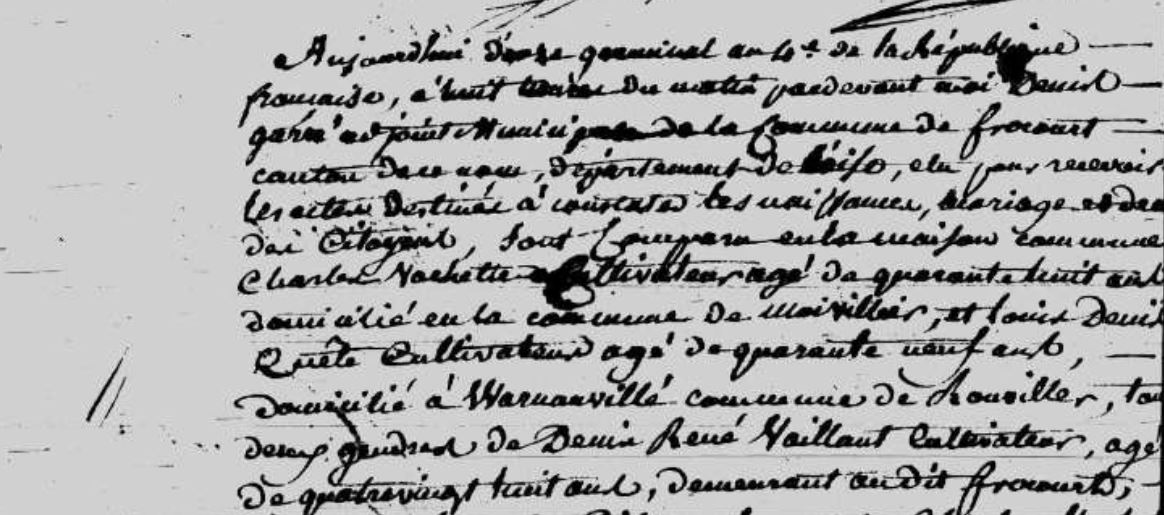 Aujourd'hui onze germinal an 4.e de la République
francaise, à huit heures du matin pardevant moi Denis
garré adjoint Municipal de la Commune de frocourt
canton de ce nom, département de l'oise, elu pour recevoir
les actes destinés à constater les naissances, mariage et de
des Citoyens, sont Comparu en la maison commune
Charles Vachette Cultivateur agé de quarante huit ans
domicilié en la commune de moivillers, et louis Denis
Quête Cultivateur agé de quarante neuf ans,
domicilié à Warnanvillé commune de Rouviller, tou
deux gendres de Denis René Vaillant Cultivateur, agé
de quatrevingt huit ans, demeurant au dit frocourt,